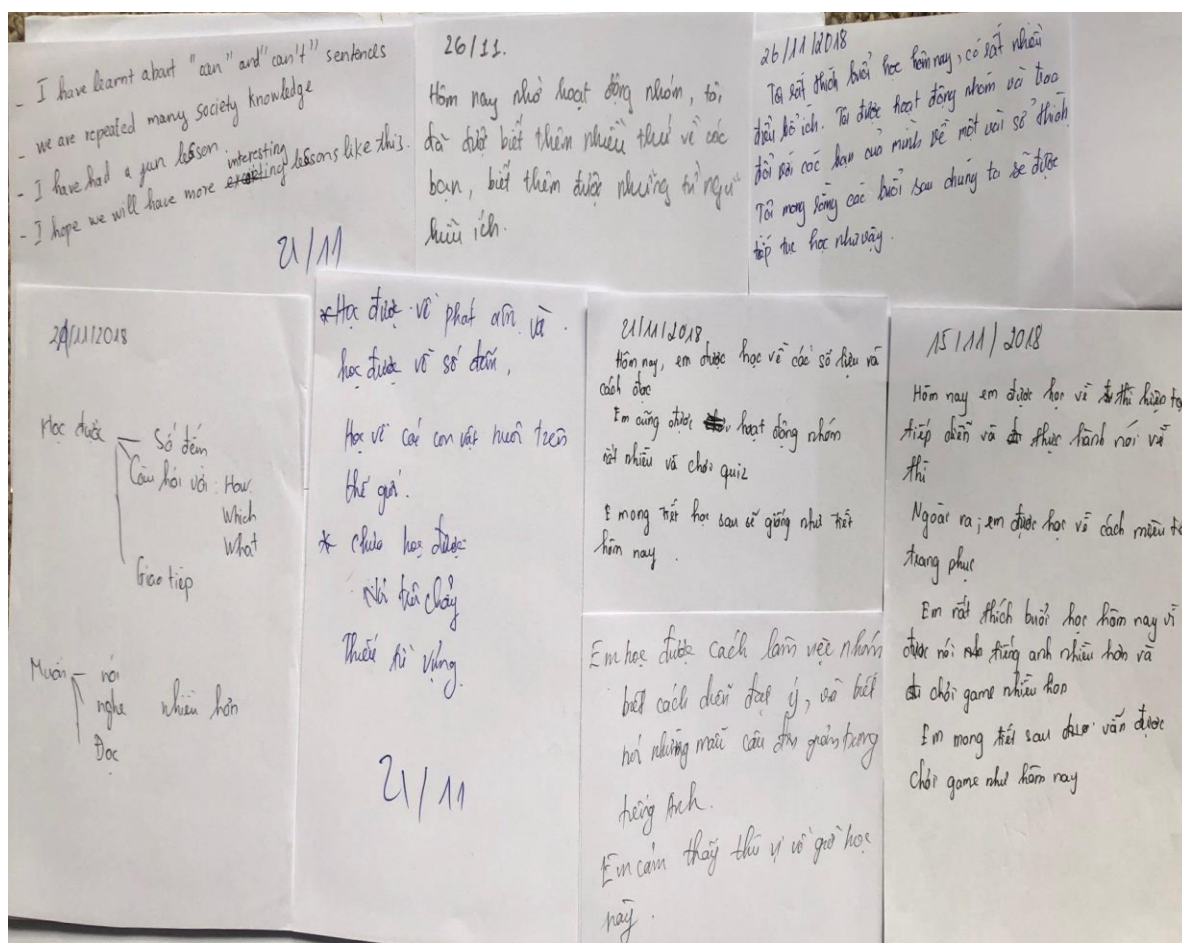 - I have learnt about "can" and "can't" sentences
- we are repeated many society knowledge
- I have had a fun lesson.
- I hope we will have more interesting lessons like this.
21/11
26/11.
Hôm nay nhờ hoạt động nhóm, tôi
đã được biết thêm nhiều thứ về các
bạn, biết thêm được những từ ngữ
hữu ích.
26/11/2018
Tôi rất thích buổi học hôm nay, có rất nhiều
điều bổ ích. Tôi được hoạt động nhóm và trao
đổi với các bạn của mình về một vài sở thích
Tôi mong rằng các buổi sau chúng ta sẽ được
tiếp tục học như vậy.
21/11/2018
Học được
Số đếm
Câu hỏi với: How
Which
What
Giao tiếp
Muốn
nói
nghe nhiều hơn
Đọc
* Học được về phát âm và
học được về số đếm,
Học về các con vật nuôi trên
thế giới.
* Chưa học được
Nói trôi chảy
Thiếu từ vựng
21/11
21/11/2018
Hôm nay, em được học về các số liệu và
cách đọc
Em cũng được hoạt động nhóm
rất nhiều và chơi quiz
E mong tiết học sau sẽ giống như tiết
hôm nay.
Em học được cách làm việc nhóm
biết cách diễn đạt ý, và biết
nói những mẫu câu đơn giản trong
tiếng Anh.
Em cảm thấy thú vị về giờ học
này.
15/11/2018
Hôm nay em được học về thì hiện tại
tiếp diễn và thực hành nói về
thì
Ngoài ra, em được học về cách miêu tả
trang phục
Em rất thích buổi học hôm nay vì
được nói tiếng anh nhiều hơn và
chơi game nhiều hơn
Em mong tiết sau vẫn được
chơi game như hôm nay